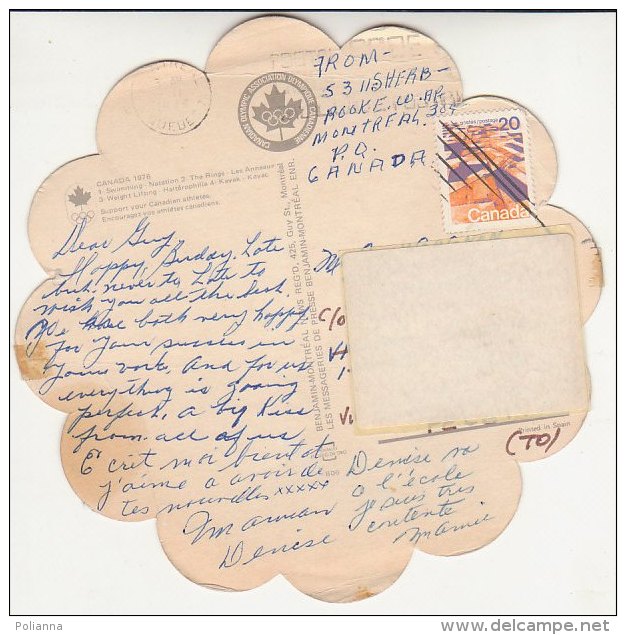 CANADIAN OLYMPIC ASSOCIATION OLYMPIQUE CANADIENNE
FROM-
5311 SHERB-
ROOKE. W. AP.
MONTREAL. 304
P.Q.
CANADA
20
Canada
CANADA 1976
1- Swimming - Natation 2. The Rings - Les Anneaux
3- Weight Lifting - Haltérophilia 4- Kayak - Kayac
Support your Canadian athletes.
Encouragez vos athlètes canadiens.
Dear Guy,
Happy Birday, Late
but never to Late to
wish you all the best.
We both very happy
for your success in
yours work, and for us
everything is going
perfect, a big Kiss
from all of us
Ecrit moi bientot
j'aime a avoir de
tes nouvelles xxxxx
Maman
Denise
Denise va
a l'école
je suis très
contente
Mamie
BENJAMIN-MONTREAL NEWS REG'D. 425, Guy St., Montréal
LES MESSAGERIES DE PRESSE BENJAMIN-MONTREAL ENR.
C/O
Printed in Spain
(TO)
Polianna
www.delcampe.net